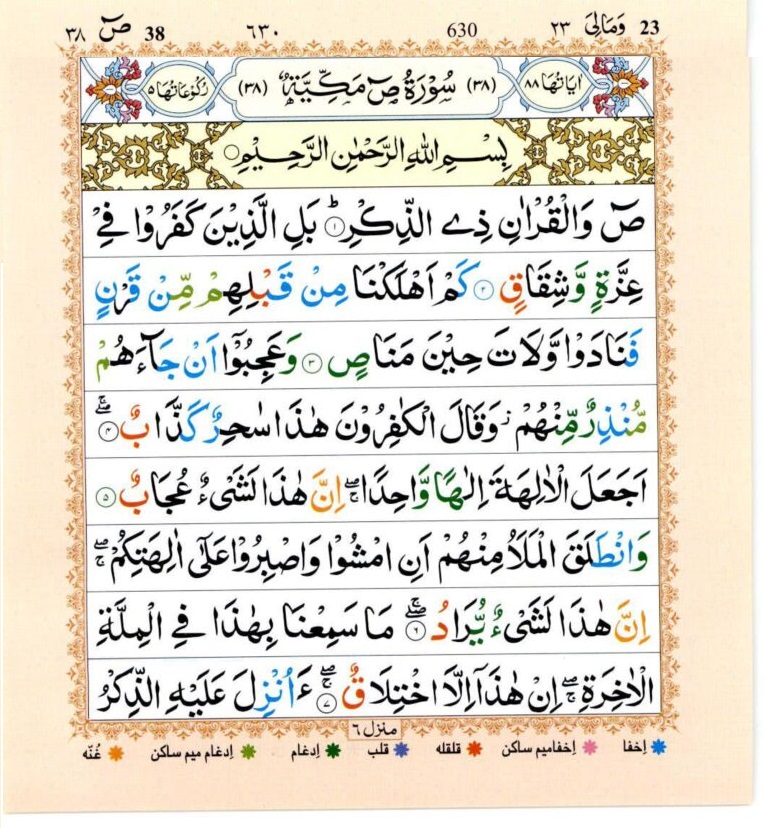 23 وَمَالِیَ ٢٣ 630 ٦٣٠ 38 صٓ ٣٨
اٰیَاتُهَا ٨٨ (٣٨) سُوْرَةُ صٓ مَکِّیَّةٌ (٣٨) رُکُوْعَاتُهَا ٥
بِسْمِ اللّٰهِ الرَّحْمٰنِ الرَّحِیْمِ
صٓ وَالْقُرْاٰنِ ذِی الذِّکْرِؕ ۱ بَلِ الَّذِیْنَ کَفَرُوْا فِیْ
عِزَّةٍ وَّشِقَاقٍ ۲ کَمْ اَهْلَکْنَا مِنْ قَبْلِهِمْ مِّنْ قَرْنٍ
فَنَادَوْا وَّلَاتَ حِیْنَ مَنَاصٍ ۳ وَعَجِبُوْۤا اَنْ جَآءَهُمْ
مُّنْذِرٌ مِّنْهُمْ ز وَقَالَ الْکٰفِرُوْنَ هٰذَا سٰحِرٌ کَذَّابٌ ۴ۖۚ
اَجَعَلَ الْاٰلِهَةَ اِلٰهًا وَّاحِدًا ۖۚ اِنَّ هٰذَا لَشَیْءٌ عُجَابٌ ۵
وَانْطَلَقَ الْمَلَاُ مِنْهُمْ اَنِ امْشُوْا وَاصْبِرُوْا عَلٰۤی اٰلِهَتِکُمْ ۖۚ
اِنَّ هٰذَا لَشَیْءٌ یُّرَادُ ۶ۖۚ مَا سَمِعْنَا بِهٰذَا فِی الْمِلَّةِ
الْاٰخِرَةِ ۖۚ اِنْ هٰذَاۤ اِلَّا اخْتِلَاقٌ ۷ۖۚ ءَاُنْزِلَ عَلَیْهِ الذِّکْرُ
منزل ٦
اِخفا اِخفامیم ساکن قلقله قلب اِدغام اِدغام میم ساکن غُنّه